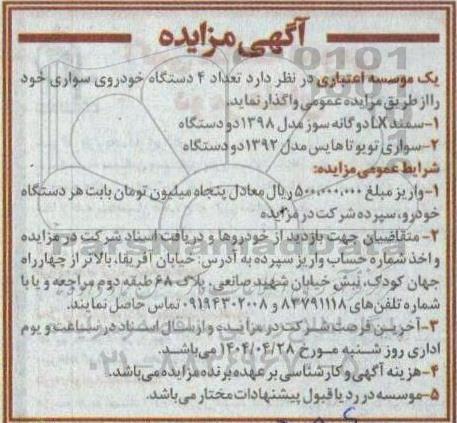 آگهی مزایده
یک موسسه اعتباری در نظر دارد تعداد ۴ دستگاه خودروی سواری خود
را از طریق مزایده عمومی واگذار نماید.
۱-سمند LX دوگانه سوز مدل ۱۳۹۸ دو دستگاه
۲-سواری تویوتا هایس مدل ۱۳۹۲ دو دستگاه
شرایط عمومی مزایده:
۱-واریز مبلغ ۵۰۰,۰۰۰,۰۰۰ ریال معادل پنجاه میلیون تومان بابت هر دستگاه
خودرو، سپرده شرکت در مزایده
۲- متقاضیان جهت بازدید از خودروها و دریافت اسناد شرکت در مزایده
و اخذ شماره حساب واریز سپرده به آدرس: خیابان آفریقا، بالاتر از چهارراه
جهان کودک، نبش خیابان شهید صانعی، پلاک ۶۸ طبقه دوم مراجعه و یا با
شماره تلفن های ۸۳۷۹۱۱۱۸ و ۰۹۱۹۴۳۰۲۰۰۸ تماس حاصل نمایند.
۳-آخرین فرصت شرکت در مزایده و ارسال اسناد در ساعت و یوم
اداری روز شنبه مورخ ۱۴۰۴/۰۴/۲۸ می‌باشد.
۴-هزینه آگهی و کارشناسی بر عهده برنده مزایده می‌باشد.
۵-موسسه در رد یا قبول پیشنهادات مختار می‌باشد.